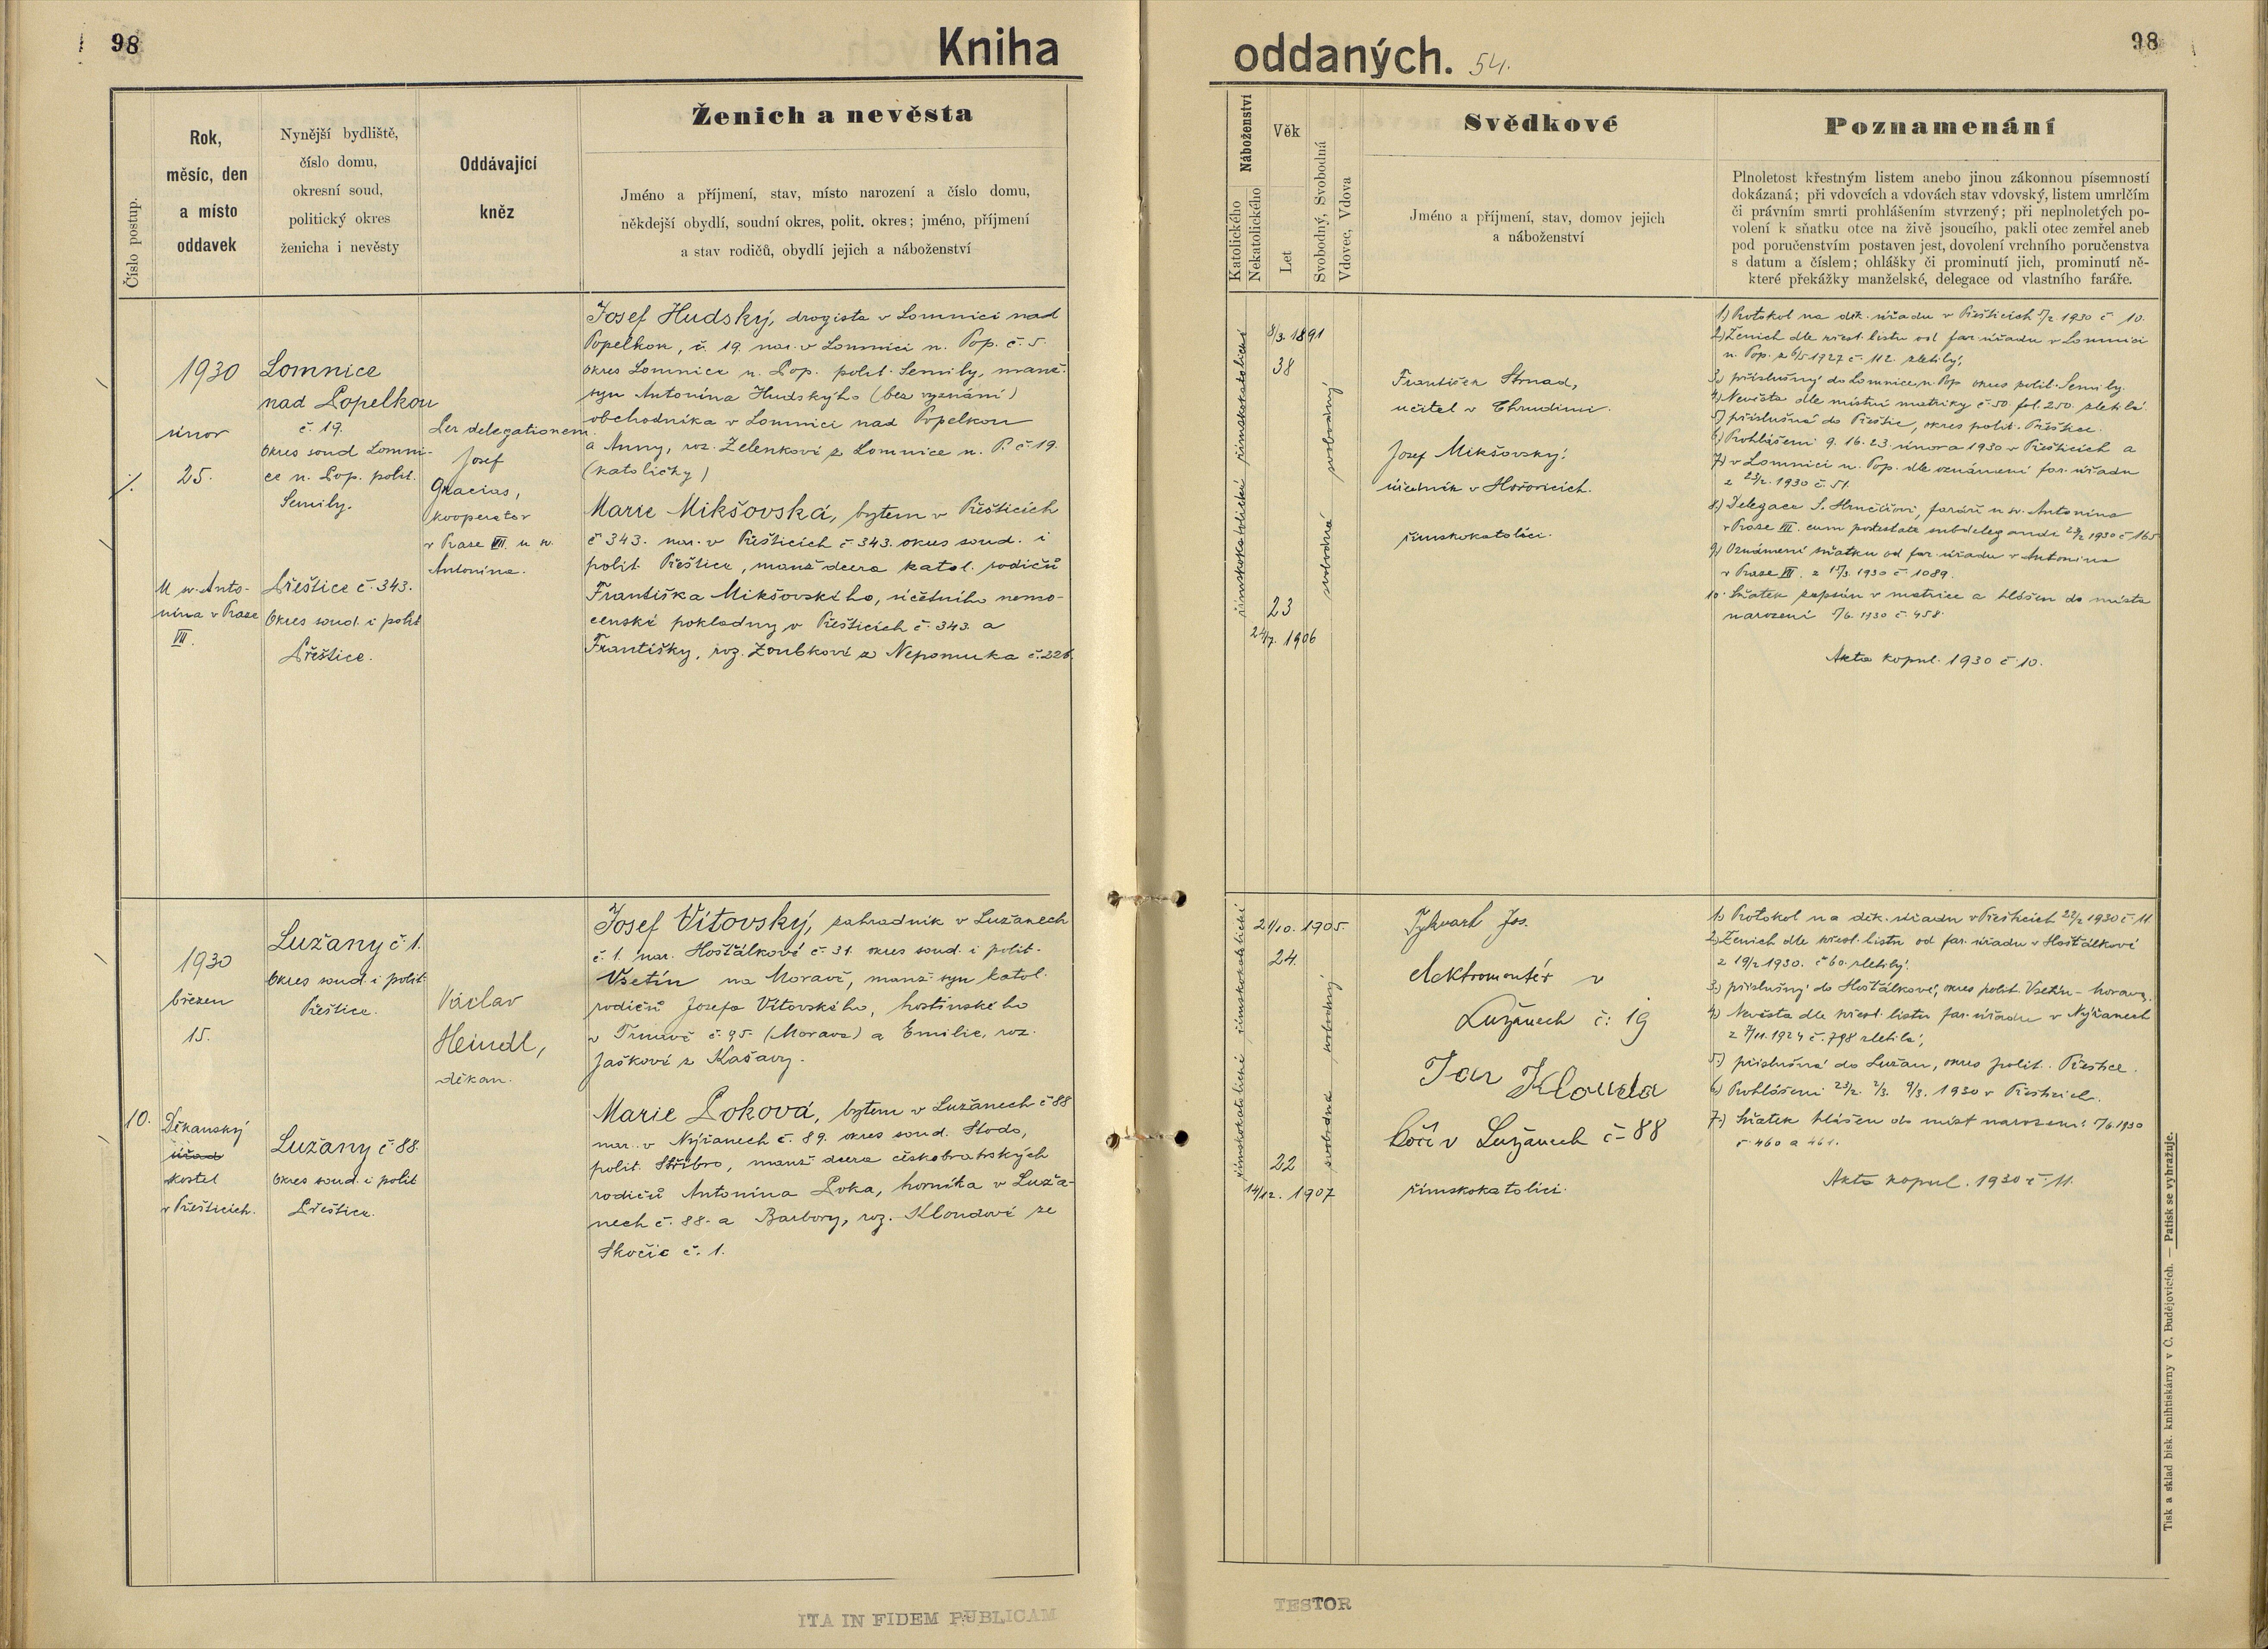 98
Kniha
Číslo postup.
Rok,
měsíc, den
a místo
oddavek
Nynější bydliště,
číslo domu,
okresní soud,
politický okres
ženicha i nevěsty
Oddávající
kněz
Ženich a nevěsta
Jméno a příjmení, stav, místo narození a číslo domu,
někdejší obydlí, soudní okres, polit. okres; jméno, příjmení
a stav rodičů, obydlí jejich a náboženství
1930
únor
25.
U sv. Anto-
nína v Praze
VII.
Lomnice
nad Popelkou
č. 19.
okres soud Lomni-
ce n. Pop. polit.
Semily.
Přeštice č. 343.
Okres soud. i polit
Přeštice.
Per delegationem
Josef
Gracias,
kooperator
v Praze VII. u sv.
Antonína.
Josef Hudský, drogista v Lomnici nad
Popelkou, č. 19. nar. v Lomnici n. Pop. č. 5.
okres Lomnice n. Pop. polit. Semily, manž.
syn Antonína Hudského (bez vyznání)
obchodníka v Lomnici nad Popelkou
a Anny, roz. Zelenkové z Lomnice n. P. č. 19.
(katoličky)
Marie Mikšovská, bytem v Přešticích
č 343. nar. v Přešticích č 343. okres soud. i
polit. Přeštice, manž dcera katol. rodičů
Františka Mikšovského, účetního nemo-
censké pokladny v Přešticích č. 343. a
Františky, roz. Zoubkové z Nepomuka č. 226.
10.
1930
březen
15.
Děkanský
úřad
kostel
v Přešticích.
Lužany č. 1.
Okres soud. i polit.
Přeštice.
Lužany č 88.
okres soud. i polit
Přeštice.
Václav
Heindl,
děkan.
Josef Vítovský, zahradník v Lužanech
č. 1. nar. Hošťálkové č. 31. okres soud. i polit.
Vsetín na Moravě, manž syn katol.
rodičů Josefa Vítovského, hostinského
v Trnavě č. 95. (Morava) a Emilie, roz.
Jaškové z Kašavy.
Marie Poková, bytem v Lužanech č 88
nar. v Nýřanech č. 89. okres soud. Stodo,
polit. Stříbro, manž dcera českobratrských
rodičů Antonína Poka, horníka v Luža-
nech č. 88. a Barbory, roz. Kloudové ze
Skočic č. 1.
ITA IN FIDEM PUBLICAM
oddaných. 54.
98
Náboženství
Katolického
Nekatolického
Věk
Let
Svobodný, Svobodná
Vdovec, Vdova
Svědkové
Jméno a příjmení, stav, domov jejich
a náboženství
Poznamenání
Plnoletost křestným listem anebo jinou zákonnou písemností
dokázaná; při vdovcích a vdovách stav vdovský, listem umrlčím
či právním smrti prohlášením stvrzený; při neplnoletých po-
volení k sňatku otce na živě jsoucího, pakli otec zemřel aneb
pod poručenstvím postaven jest, dovolení vrchního poručenstva
s datum a číslem; ohlášky či prominutí jich, prominutí ně-
které překážky manželské, delegace od vlastního faráře.
římskokatolické římskokatolické
8/3. 1891
38
23
24/7. 1906
svobodná svobodný
František Strnad,
učitel v Chrudimi.
Josef Mikšovský,
úředník v Hořovicích.
římskokatolíci.
1) Protokol na děk. úřadu v Přešticích 5/2 1930 č 10.
2) Ženich dle křest. listu od far. úřadu v Lomnici
n. Pop. z 6/5 1927 č. 112. zletilý,
3) příslušný do Lomnice n. Pop okres polit. Semily.
4) Nevěsta dle místní matriky č. 50. fol. 250. zletilá
5) příslušná do Přeštic, okres polit. Přeštice.
6) Prohlášeni 9. 16. 23. února 1930 v Přešticích a
7) v Lomnici n. Pop. dle oznámení far. úřadu
z 23/2. 1930 č. 51.
8.) Delegace J. Hrnčířovi, faráři u sv. Antonína
v Praze VII. cum potestate subdelegandi 1930 č 165
9) Oznámení sňatku od far. úřadu v Antonína
v Praze VII. z 1930 č. 1089.
10. Sňatek zapsán v matrice a hlášen do místa
narození 7/6. 1930 č. 458.
Akta kopul. 1930 č. 10.
římskokatolické římskokatolické
21/10. 1905.
24.
22
14/12. 1907
svobodná svobodný
Jos.
elektromontér v
Lužanech č: 19
Jan Klouda
kočí v Lužanech č 88
římskokatolíci.
1) Protokol na děk. úřadu v Přešticích 22/2 1930 č 11.
2) Ženich dle křest. listu od far. úřadu v Hošťálkové
z 19/2 1930. č 60. zletilý.
3.) příslušný do Hošťálkové, okres polit. Vsetín - Morava.
4.) Nevěsta dle křest. listu far. úřadu v Nýřanech
z 7/11. 1924 č. 798 zletilá,
5.) příslušná do Lužan, okres polit. Přeštice.
6.) Prohlášeni 23/2. 2/3. 9/3. 1930 v Přešticích.
7.) Sňatek hlášen do míst narození 7/6. 1930
č. 460 a 461.
Akta kopul. 1930 č. 11.
Tisk a sklad bisk. knihtiskárny v Č. Budějovicích. — Patisk se vyhražuje.
TESTOR